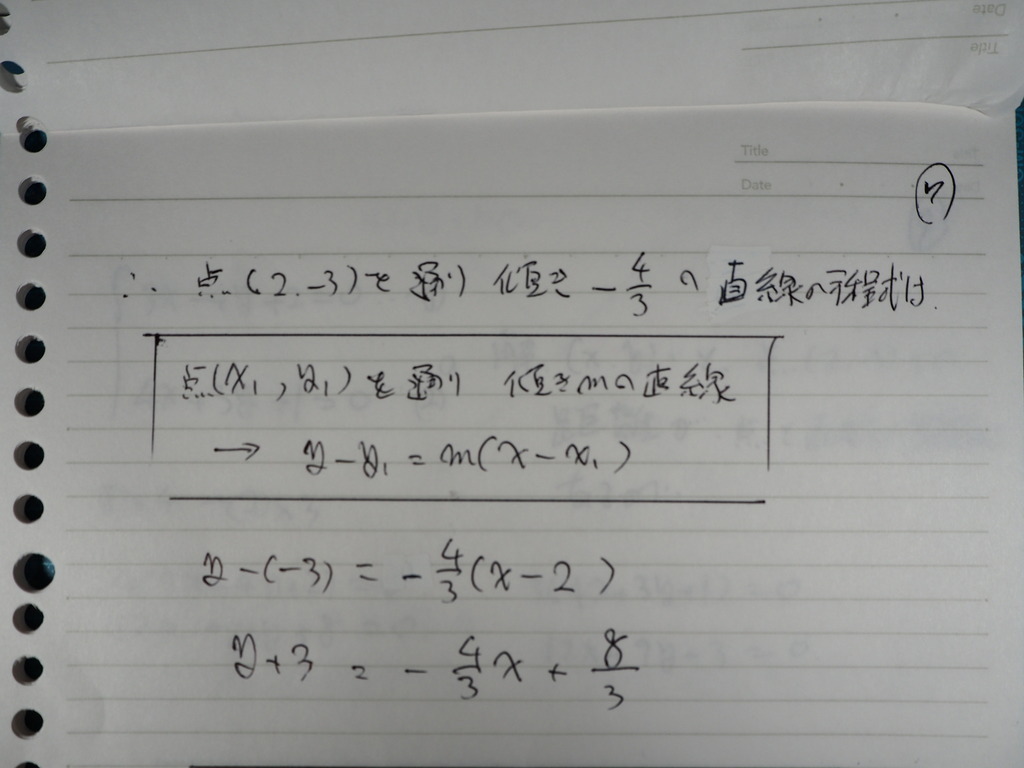 Date
Title
Title
Date
⑦
∴ 点(2,-3)を通り 傾き -4/3 の 直線の方程式は
点(x₁, y₁)を通り 傾きmの直線
→ y-y₁ = m(x-x₁)
y-(-3) = -4/3(x-2)
y+3 = -4/3x + 8/3